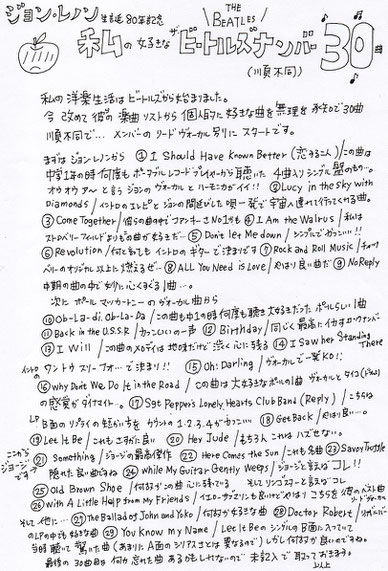 ジョン・レノン 生誕80年記念
THE
BEATLES
私の好きなザ・ビートルズナンバー30曲
(川頁不同)
私の洋楽生活はビートルズから始まりました。
今改めて彼等の楽曲リストから個人的に好きな曲を無理を承知で30曲
川頁不同で... メンバーのリードヴォーカル別にスタートです。
まずはジョンレノンから ① I Should Have Known Better (恋する二人) / この曲は
中学1年の時何度もポータブルレコードプレイヤーから聴いた 4曲入りシングル盤のもの…。
オウオウアーと言うジョンのヴォーカルとハーモニカがイイ!! ② Lucy in the Sky with
Diamonds / イントロのエレピとジョンの間延びした唄一発で宇宙へ連れて行ってくれる曲。
③ Come Together / 彼らの曲の中でファンキーさNo1かも ④ I Am the Walrus / 私は
ストロベリーフィールドよりもこの曲が好きだ… ⑤ Don't let Me down / シングルでカッコいい!!
⑥ Revolution / 何と言ってもイントロのギターで決まりです ⑦ Rock and Roll Music / チャック
ベリーのオリジナル以上に燃えるぜ… ⑧ All You Need is Love / やはり良い曲だ ⑨ No Reply
中期の曲の中で妙に心にくる1曲…。
次にポールマッカートニーのヴォーカル曲から
⑩ Ob-La-di. Ob-La-Da / この曲も中1の時何度も聴き大好きだった ポールらしい1曲
⑪ Back in the U.S.S.R / カッコいいの一声 ⑫ Birthday / 同じく最高にイカすロックナンバー
⑬ I Will / この曲のメロディは地味だけど渋く心に残る ⑭ I Saw her Standing There
イントロのワン トゥ スリー フォーで決まり!! ⑮ Oh! Darling / ヴォーカルで一発KO!!
⑯ Why Don't We Do It in the Road / この曲は大好きなポールの1曲 ヴォーカルとタイコ(ドラム)
の感覚がダイナマイト…。 ⑰ Sgt Pepper's Lonely Hearts Club Band (Reply) / こちらは
LP B面のリプライの短かい方を カウントの1.2.3.4がカッコいい ⑱ Get Back / やはり良い…。
⑲ Let It Be / これもさすがに良い ⑳ Hey Jude / もちろんこれはハズせない。
ここからジョージです
㉑ Something / ジョージの最高傑作 ㉒ Here Comes the Sun / これも名曲 ㉓ Savoy Truffle
隠れた良い曲ですね ㉔ While My Guitar Gently Weeps / ジョージと言えばコレ!!
㉕ Old Brown Shoe / 何故かこの曲心に残っている そしてリンゴスターと言えばコレ
㉖ With A Little Help from My Friends / イエローサブマリンも良いけどやはりこちらを 彼のベスト曲
そして他に… ㉗ The Ballad of John and Yoko / 何故か好きな曲 ㉘ Doctor Robert / リボルバー
のLPの中でも好きな曲 ㉙ You Know My Name / Let It Beのシングル B面に入っていて
当時聴いて驚いた曲 (あまりにA面のシリアスさとは異なるので) しかし何故か良いのですね。
最後の30曲目は何か忘れた曲あるかもしれないので 未記入で取っておきます。
以上